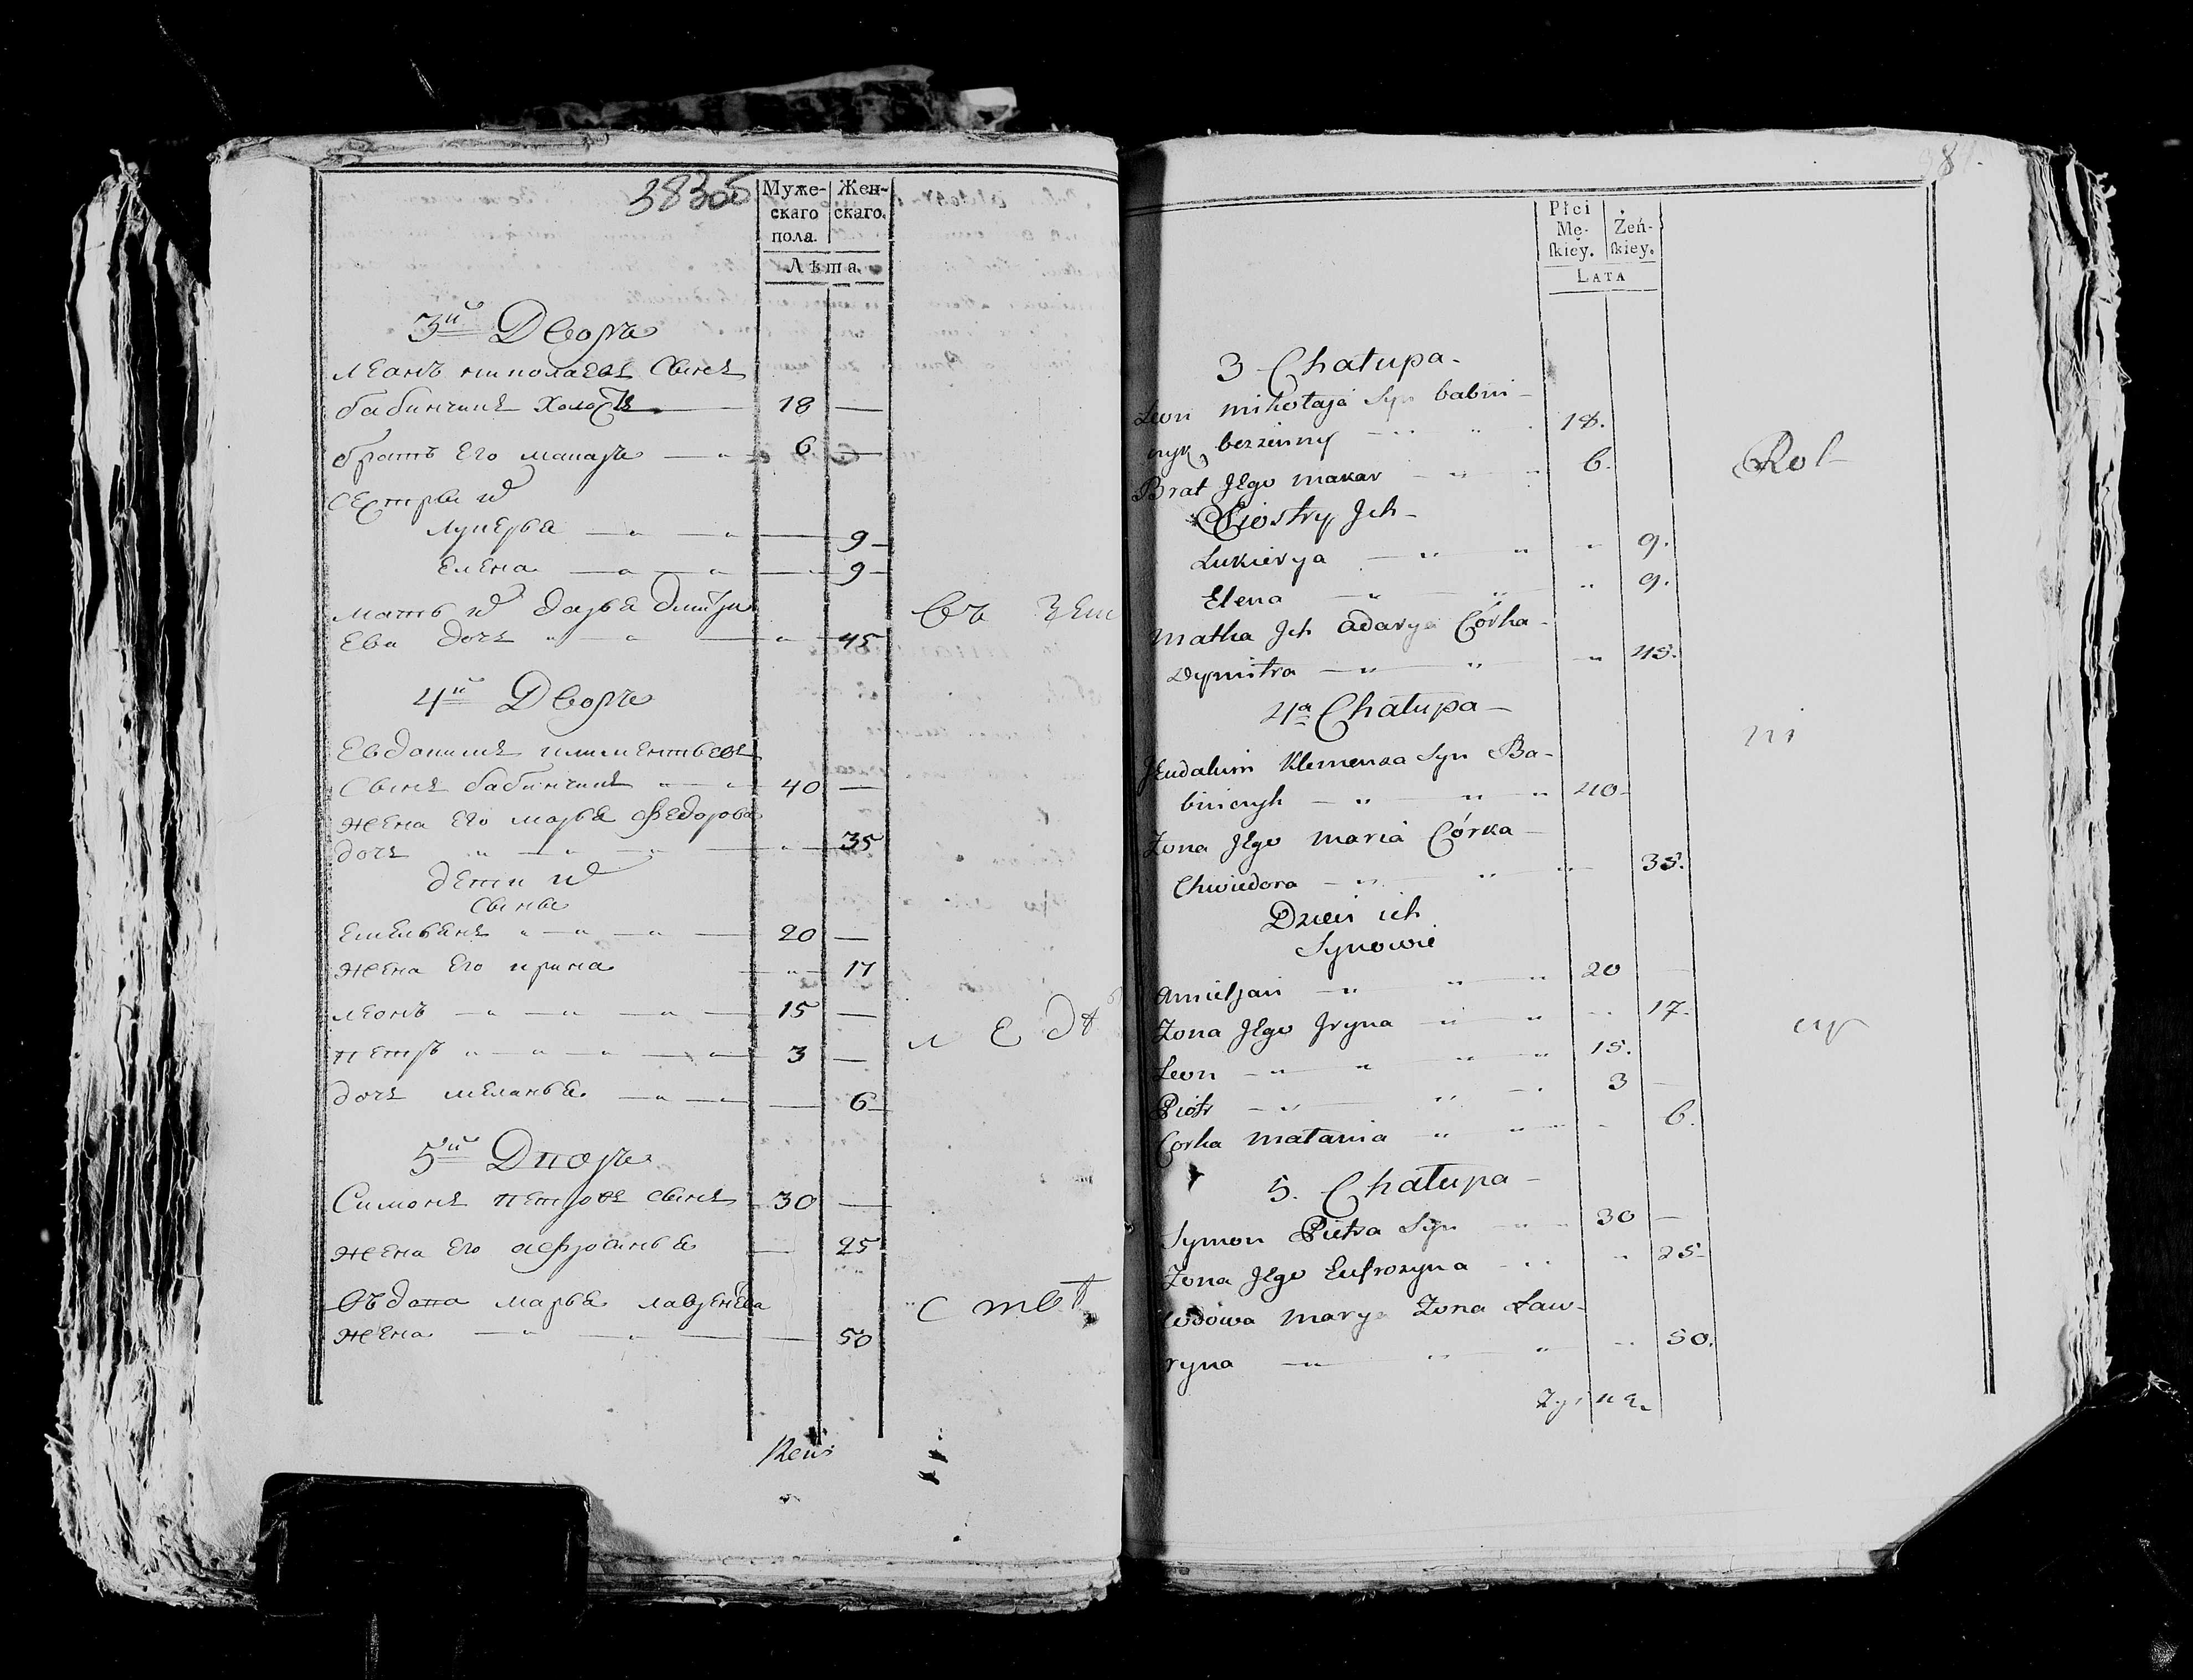 38 305
Муже-
скаго
пола.
Жен-
скаго.
Лѣта.
3й Дворъ
леонъ николаевъ сынъ
бабинчикъ холостъ 18 —
братъ Его макаръ — „ 6 —
сестры их
лукерья — „ — „ — 9 —
Елена — „ — „ — 9 —
мать их дарья дмитри
Ева дочь „ — „ — „ — 45
въ зем
4й Дворъ
Евдокимъ климентьевъ
сынъ бабинчикъ „ — „ 40 —
жена Его марья федорова
дочь „ — „ — „ — „ — 35
дети их
сыны
Емельянъ „ — „ — „ — 20 —
жена Его ирина — „ — 17
леонъ — „ — „ — „ — 15 —
л е дѣ
петръ „ — „ — „ — „ 3 —
дочь меланья — „ — — 6 —
5й Дворъ
Симонъ петровъ сынъ 30 —
жена Его афросинья — 25
въдова марья лаврентева
жена — „ — „ — — 50
с твѣ
Rewi
Płci
Mę-
ſkiey.
Żeń-
ſkiey.
LATA
3 Chałupa -
Leon mikołaja Syn babin -
czyk bezzenny — „ „ 18.
Brat Jego makar — „ — „ 6.
Rol
Siostry Jch -
Lukierya — „ „ „ 9.
Elena — „ „ „ 9.
Matka Jch adarya Córka -
Dymitra — „ „ „ 45.
4a Chałupa -
ni
Jeudakim Klemensa Syn Ba -
binczyk — „ „ „ 40 -
Zona Jego maria Córka -
Chwiedora — „ „ „ 35.
Dzieci ich
Synowie
Amieljan — „ „ „ 20 —
Zona Jego Jryna — „ „ „ 17 -
czy
Leon — „ „ „ 15.
Piotr — „ „ — „ 3 —
Corka małania „ „ „ 6.
5. Chałupa -
Symon Pietra Syn — „ 30 —
Zona Jego Eufrozyna - „ „ 25 -
Wdowa marya Zona Ław -
ryna — „ „ „ „ 50.